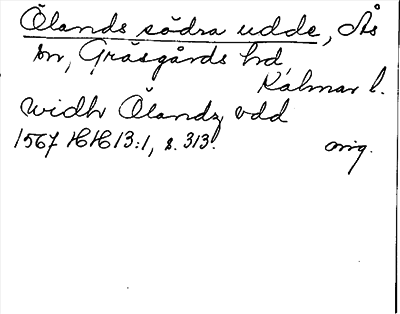 Ölands södra udde, Ås
sn, Gräsgårds hd,
Kalmar l.
widh Ölandz vdd
1567 HH 13:1, s. 313.   orig.